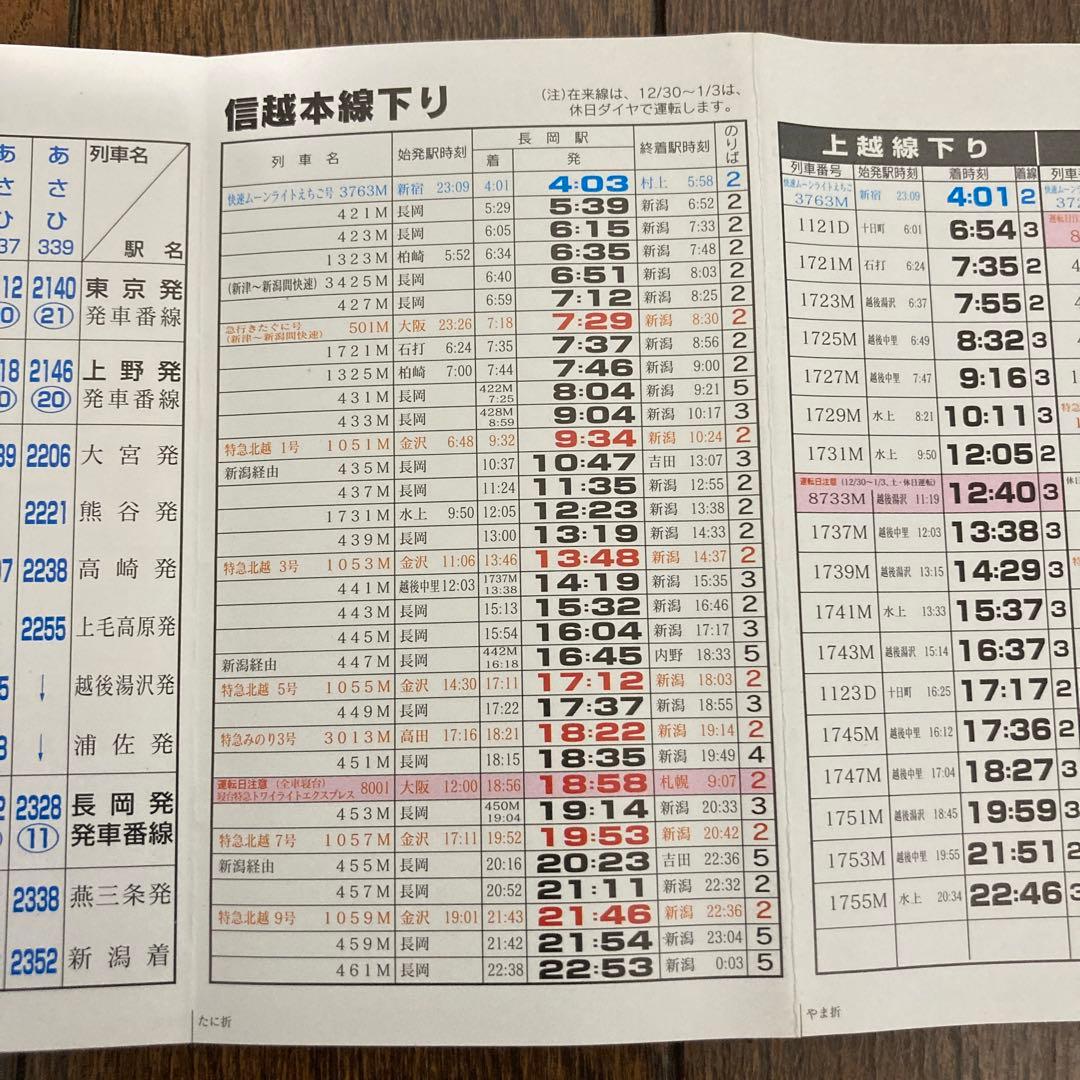 あ あ 列車名
さ さ
ひ ひ
37 339 駅名
12 2140 東京発
0 21 発車番線
18 2146 上野発
0 20 発車番線
39 2206 大宮発
2221 熊谷発
07 2238 高崎発
2255 上毛高原発
5 ↓ 越後湯沢発
3 ↓ 浦佐発
2 2328 長岡発
11 発車番線
2338 燕三条発
2352 新潟着
信越本線下り
(注)在来線は、12/30～1/3は、
休日ダイヤで運転します。
列車名 始発駅時刻 長岡駅 終着駅時刻 のりば
着 発
快速ムーンライトえちご号 3763M 新宿 23:09 4:01 4:03 村上 5:58 2
421M 長岡 5:29 5:39 新潟 6:52 2
423M 長岡 6:05 6:15 新潟 7:33 2
1323M 柏崎 5:52 6:34 6:35 新潟 7:48 2
(新津～新潟間快速) 3425M 長岡 6:40 6:51 新潟 8:03 2
427M 長岡 6:59 7:12 新潟 8:25 2
急行きたぐに号
(新津～新潟間快速) 501M 大阪 23:26 7:18 7:29 新潟 8:30 2
1721M 石打 6:24 7:35 7:37 新潟 8:56 2
1325M 柏崎 7:00 7:44 7:46 新潟 9:00 2
431M 長岡 422M 7:25 8:04 新潟 9:21 5
433M 長岡 428M 8:59 9:04 新潟 10:17 3
特急北越 1号 1051M 金沢 6:48 9:32 9:34 新潟 10:24 2
新潟経由 435M 長岡 10:37 10:47 吉田 13:07 3
437M 長岡 11:24 11:35 新潟 12:55 2
1731M 水上 9:50 12:05 12:23 新潟 13:38 2
439M 長岡 13:00 13:19 新潟 14:33 2
特急北越 3号 1053M 金沢 11:06 13:46 13:48 新潟 14:37 2
441M 越後中里 12:03 1737M 13:38 14:19 新潟 15:35 3
443M 長岡 15:13 15:32 新潟 16:46 2
445M 長岡 15:54 16:04 新潟 17:17 3
新潟経由 447M 長岡 442M 16:18 16:45 内野 18:33 5
特急北越 5号 1055M 金沢 14:30 17:11 17:12 新潟 18:03 2
449M 長岡 17:22 17:37 新潟 18:55 3
特急みのり3号 3013M 高田 17:16 18:21 18:22 新潟 19:14 2
451M 長岡 18:15 18:35 新潟 19:49 4
運転日注意 (全車寝台)
寝台特急トワイライトエクスプレス 8001 大阪 12:00 18:56 18:58 札幌 9:07 2
453M 長岡 450M 19:04 19:14 新潟 20:33 3
特急北越 7号 1057M 金沢 17:11 19:52 19:53 新潟 20:42 2
新潟経由 455M 長岡 20:16 20:23 吉田 22:36 5
457M 長岡 20:52 21:11 新潟 22:32 2
特急北越 9号 1059M 金沢 19:01 21:43 21:46 新潟 22:36 2
459M 長岡 21:42 21:54 新潟 23:04 5
461M 長岡 22:38 22:53 新潟 0:03 5
たに折
上越線下り
列車番号 始発駅時刻 着時刻 着線
快速ムーンライトえちご
3763M 新宿 23:09 4:01 2
1121D 十日町 6:01 6:54 3
1721M 石打 6:24 7:35 2
1723M 越後湯沢 6:37 7:55 2
1725M 越後中里 6:49 8:32 3
1727M 越後中里 7:47 9:16 3
1729M 水上 8:21 10:11 3
1731M 水上 9:50 12:05 2
運転日注意 (12/30～1/3、土・休日運転)
8733M 越後湯沢 11:19 12:40 3
1737M 越後中里 12:03 13:38 3
1739M 越後湯沢 13:15 14:29 3
1741M 水上 13:33 15:37 3
1743M 越後湯沢 15:14 16:37 3
1123D 十日町 16:25 17:17 2
1745M 越後中里 16:12 17:36 2
1747M 越後中里 17:04 18:27 3
1751M 越後湯沢 18:45 19:59 3
1753M 越後中里 19:55 21:51 2
1755M 水上 20:34 22:46 3
やま折